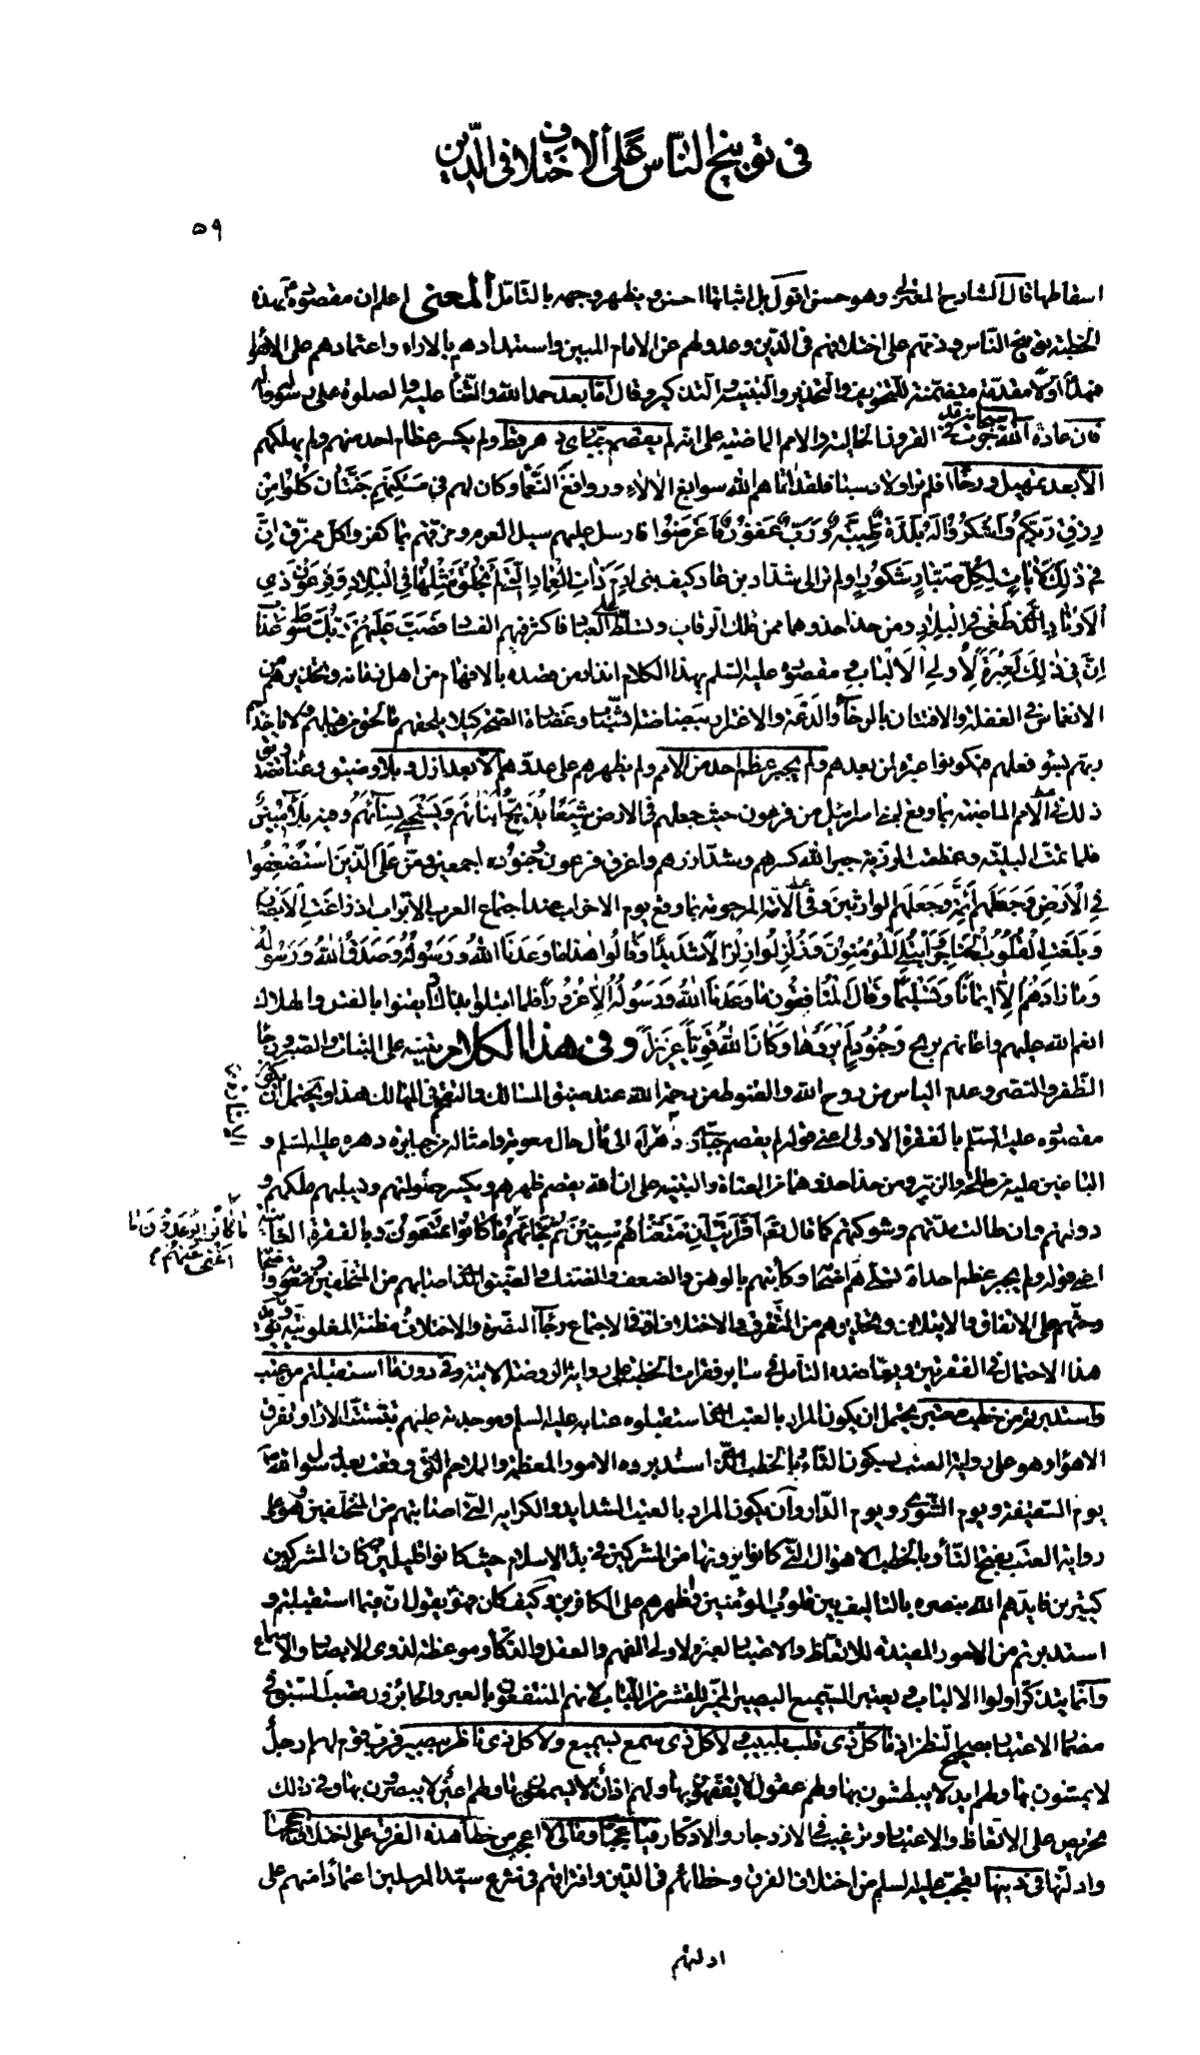 فی توبیخ الناس علی الاختلاف فی الدین
۵۹
اسقاطها قال الشارح المعتزلی وهو حسن اقول بل اثباتها احسن ویظهر وجهه بالتأمل المعنی اعلم ان مقصوده بهذه
الخطبة توبیخ الناس وذمّهم علی اختلافهم فی الدّین وعدولهم عن الامام المبین واستبدادهم بالاراء واعتمادهم علی الاهواء
فمهّد اوّلا مقدّمة متضمّنة للتخویف والتحذیر والتنبیه والتذکیر وقال امّا بعد حمد الله والثّناء علیه والصلوة علی رسوله واله
فان عادة الله سبحانه قد جرت فی القرون الخالیة والامم الماضیة علی انه لم یقصم جبّاری دهر قطّ ولم یکسر عظام احد منهم ولم یهلکهم
الّا بعد تمهیل ورخاء افلم تر اولاد سبا فلقد اتاهم الله سوابغ الالاء وروافغ النّعماء وکان لهم فی مسکنهم جنّتان کُلُوا مِن
رِزْقِ رَبِّکُمْ وَاشْکُرُوا لَهُ بَلْدَةٌ طَیِّبَةٌ وَرَبٌّ غَفُورٌ فَأَعْرَضُوا فارسل علیهم سیل العرم ومزّقهم بما کفروا کلّ ممزّق اِنَّ
فِی ذلِکَ لَایاتٍ لِکُلِّ صَبّارٍ شَکُورٍ اولم تر الی شدّاد بن عاد کیف بنی اِرَمَ ذاتِ الْعِمادِ الَّتی لَمْ یُخْلَقْ مِثْلُها فِی الْبِلادِ وَفِرْعَوْنَ ذِی
الْاَوْتادِ الَّذی طَغی فِی الْبِلادِ ومن حذا حذوهما ممن ملک الرقاب وتسلّط علی العباد فاکثر فیهم الفساد فَصَبَّ عَلَیْهِمْ رَبُّکَ سَوْطَ عَذابٍ
اِنَّ فی ذلِکَ لَعِبْرَةً لِاُولِی الْاَلْبابِ ومقصوده علیه السّلم بهذا الکلام انذار من قصده بالافهام من اهل زمانه وتحذیرهم من
الانغماس فی الغفلة والافتتان بالرخاء والدعة والاغترار کیلا یلحقهم ما لحق من قبلهم
ربّهم بسوء فعلهم فیکونوا عبرة لمن بعدهم ولم یجبر عظم احد من الامم ولم یظهرهم علی عدوّهم الّا بعد ازل وبلاء وضیق وعناء
ذلک فی الامم الماضیة بما وقع لبنی اسرائیل من فرعون حیث جعلهم فی الارض شِیَعاً یُذَبِّحُ اَبْناءَهُمْ وَیَسْتَحْیی نِساءَهُمْ وفیه بلاء مبین
فلما تمّت البلیّة وعظمت الرزیّة جبر الله کسرهم وشدّ ازرهم واغرق فرعون وجنوده اجمعین ومنّ عَلَی الَّذینَ اسْتُضْعِفُوا
فِی الْاَرْضِ وَجَعَلَهُمْ اَئِمَّةً وَجَعَلَهُمُ الْوارِثینَ وفی الامّة المرحومة بما وقع یوم الاحزاب عند اجتماع العرب الاتراب اذ زاغَتِ الْاَبْصارُ
وَبَلَغَتِ الْقُلُوبُ الْحَناجِرَ اُبْتُلِیَ الْمُؤْمِنُونَ وَزُلْزِلُوا زِلْزالًا شَدیداً وَقالُوا هذا ما وَعَدَنَا اللهُ وَرَسُولُهُ وَصَدَقَ اللهُ وَرَسُولُهُ
وَما زادَهُمْ اِلّا ایماناً وَتَسْلیماً وَقالَ الْمُنافِقُونَ ما وَعَدَنَا اللهُ وَرَسُولُهُ اِلّا غُرُوراً فلما ابتلوا بذلک وایقنوا بالفشل والهلاک
انعم الله علیهم واعانهم بریح وَجُنُودٍ لَمْ تَرَوْها وَکانَ اللهُ قَوِیّاً عَزیزاً وفی هذا الکلام تنبیه علی الثبات والصبر ورجاء
الظّفر والنصر وعدم الیاس من روح الله والقنوط من رحمة الله عند ضیق المسالک والتقحّم فی المهالک هذا ویحتمل ان یکون
الاشارة
مقصوده علیه السّلم بالفقرة الاولی اعنی قوله لم یقصم جبّاری دهر اه الی مآل حال معویة وامثاله من جبابرة دهره علیه السّلم و
الباغین علیه من طلحة والزّبیر ومن حذا حذوهما من العتاة والتنبیه علی ان الله یقصم ظهرهم ویکسر صولتهم ویسلبهم ملکهم و
دولتهم وان طالت مدّتهم وشوکتهم کما قال تعالی اَفَرَاَیْتَ اِنْ مَتَّعْناهُمْ سِنینَ ثُمَّ جاءَهُمْ ما کانُوا یُمَتَّعُونَ وبالفقرة الثانیة
ما کانُوا یُوعَدُونَ ما
اَغْنی عَنْهُمْ
اعنی قوله ولم یجبر عظم احد اه تسلیة اصحابه وکأبتهم بالوهن والضعف والضنک والضیق الّذی اصابهم من المتخلفین
وحثّهم علی الاتفاق والایتلاف وتحذیرهم من التّفرّق والاختلاف فان فی الاجتماع رجاء النصرة والاختلاف مظنة المغلوبیة
هذا الاحتمال فی الفقرتین وبعدهما التأمل فی سایر فقرات الخطبة علی روایة الروضة الاتیة وفی دون ما استقبلتم من عتب
واستدبرتم من خطب معتبر یحتمل ان یکون المراد بالعتب الّذی استقبلوه عتابه علیه السلم وموجدته علیهم بتشتّت الاراء وتفرق
الاهواء وهو علی روایة العتب بسکون التاء وبالخطب الّذی استدبروه الامور المعظمة والملاحم التّی وقعت بعد رسول الله
یوم السّقیفة ویوم الشّوری ویوم الدّار وان یکون المراد بالعتب الشداید والکرایه التّی اصابتهم من المتخلفین وهو علی
روایة العتب بفتح التاء وبالخطب الاهوال التّی کانوا یرونها من المشرکین فی بدء الاسلام حیث کانوا قلیلین وکان المشرکین
کثیرین فایّدهم الله بنصره بالتالیف بین قلوب المؤمنین واظهرهم علی الکافرین وکیف کان فهو یقول انّ فیما استقبلتم و
استدبرتم من الامور المفیدة للاتعاظ والاعتبار لعبرة لاولی الفهم والعقل والذکاء وموعظة لذوی الابصار والاسماع
وانّما یتذکر اولوا الالباب ویعتبر السّمیع البصیر الممیّز للقشر من اللّباب لانهم المنتفعون بالعبر والحائزون قصب السّبق فی
مضمار الاعتبار بصحیح النظر اذ ما کلّ ذی قلب بلبیب ولا کل ذی سمع بسمیع ولا کل ذی ناظر ببصیر فربّ قوم لهم ارجل
لا یمشون بها ولهم اید لا یبطشون بها ولهم عقول لا یفقهون بها ولهم اذان لا یسمعون بها ولهم اعین لا یبصرون بها وفی ذلک
تحریص علی الاتعاظ والاعتبار وترغیب فی الازدجار والاذکار فیا عجبا وما لی لا اعجب من خطاء هذه الفرق علی اختلاف حججها
وادلّتها فی دینها تعجّب علیه السلم من اختلاف الفرق وخطائهم فی الدّین وافتراقهم فی شرع سیّد المرسلین اعتمادا منهم علی
ادلتهم